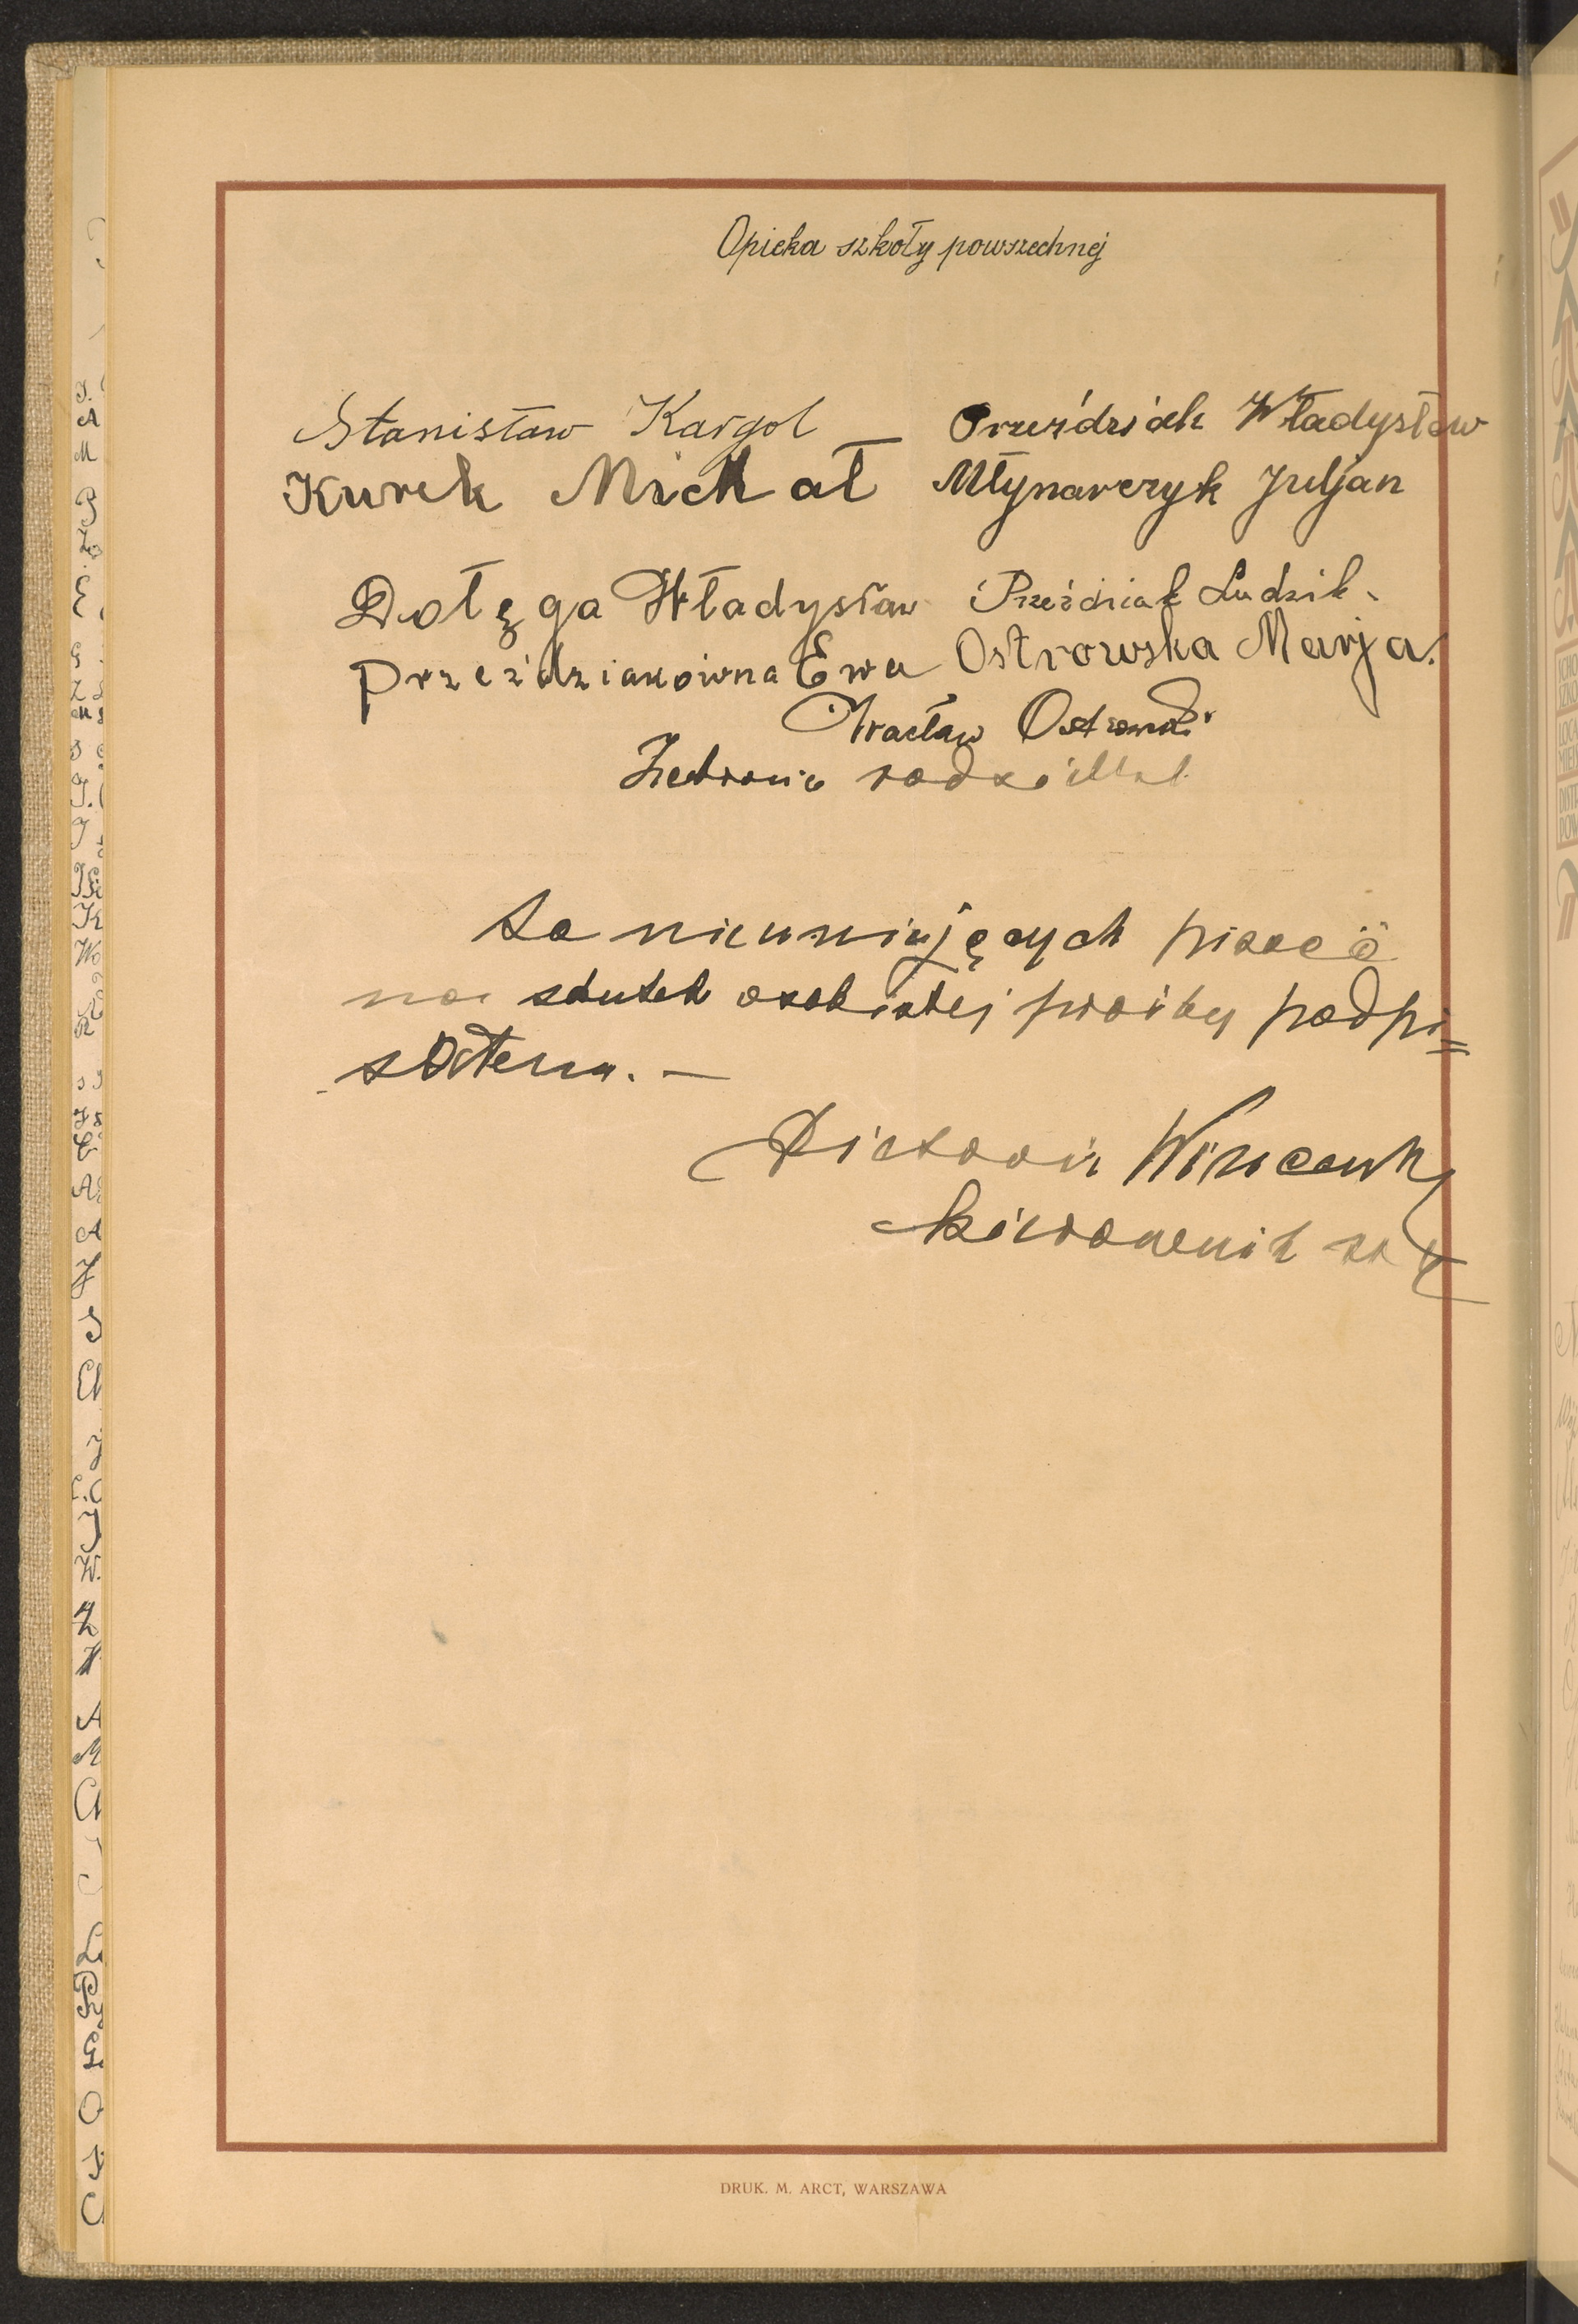 Opieka szkoły powszechnej
Stanisław Kargol — Przeździak Władysław
Kurek Michał Młynarczyk Juljan
Dołęga Władysław Przeździak Ludwik.
Przeździakówna Ewa Ostrowska Marja.
Wacław Ostrowski
Zebranie
Za nieumiejących pisać i
na skutek osobistej prośby podpi=
sałem. —
Wincenty
kierownik szk
DRUK. M. ARCT, WARSZAWA